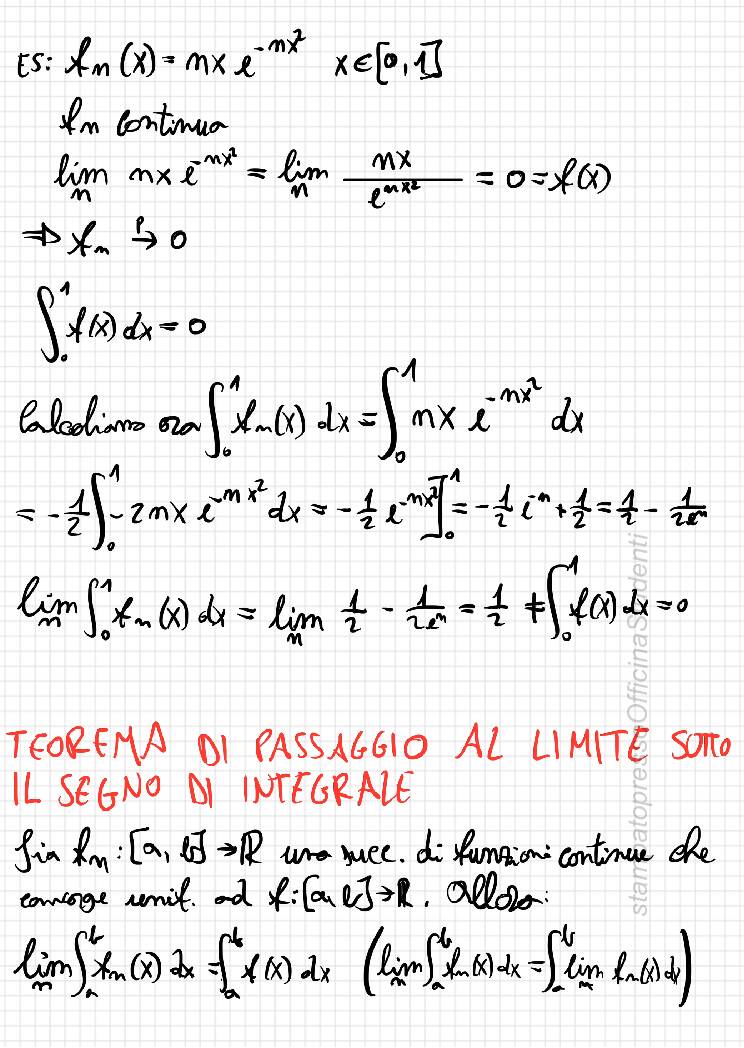 ES: fn(x) = nx e^-nx² x∈[0,1]
fn continua
lim n nx e^-nx² = lim n nx/e^nx² = 0 = f(x)
⇒ fn →p 0
∫₀¹ f(x) dx = 0
Calcoliamo ora ∫₀¹ fn(x) dx = ∫₀¹ nx e^-nx² dx
= -1/2 ∫₀¹ -2nx e^-nx² dx = -1/2 e^-nx²]₀¹ = -1/2 e^-n + 1/2 = 1/2 - 1/2e^n
lim n ∫₀¹ fn(x) dx = lim n 1/2 - 1/2e^n = 1/2 ≠ ∫₀¹ f(x) dx = 0
TEOREMA DI PASSAGGIO AL LIMITE SOTTO
IL SEGNO DI INTEGRALE
Sia fn: [a, b] → R una succ. di funzioni continue che
converge unif. ad f: [a, b] → R. Allora:
lim n ∫ₐᵇ fn(x) dx = ∫ₐᵇ f(x) dx (lim n ∫ₐᵇ fn(x) dx = ∫ₐᵇ lim n fn(x) dx)
stampatopressoOfficinaStudenti